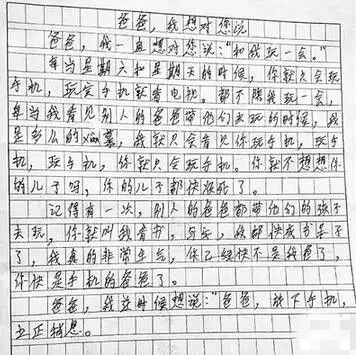 爸爸,我想对您说
爸爸,我一直想对您说:“和我玩一会。”
每当星期六和星期天的时候,你就只会玩
手机,玩完手机就看电视。都不陪我玩一会,
每当我看见别人的爸爸带他们去玩的时候,我
是多么的羡慕,我就只会看见你玩手机,玩手
机,玩手机,你就只会玩手机。你就不想想你
的儿子吗,你的儿子都快疯死了。
记得有一次,别人的爸爸都带他们的孩子
去玩,你就叫我看书,写字,我都快成书呆子
了,我真的非常生气,你已经快不是我爸了,
你快是手机的爸爸了。
爸爸,我这时候想说:“爸爸,放下手机,
立正稍息。